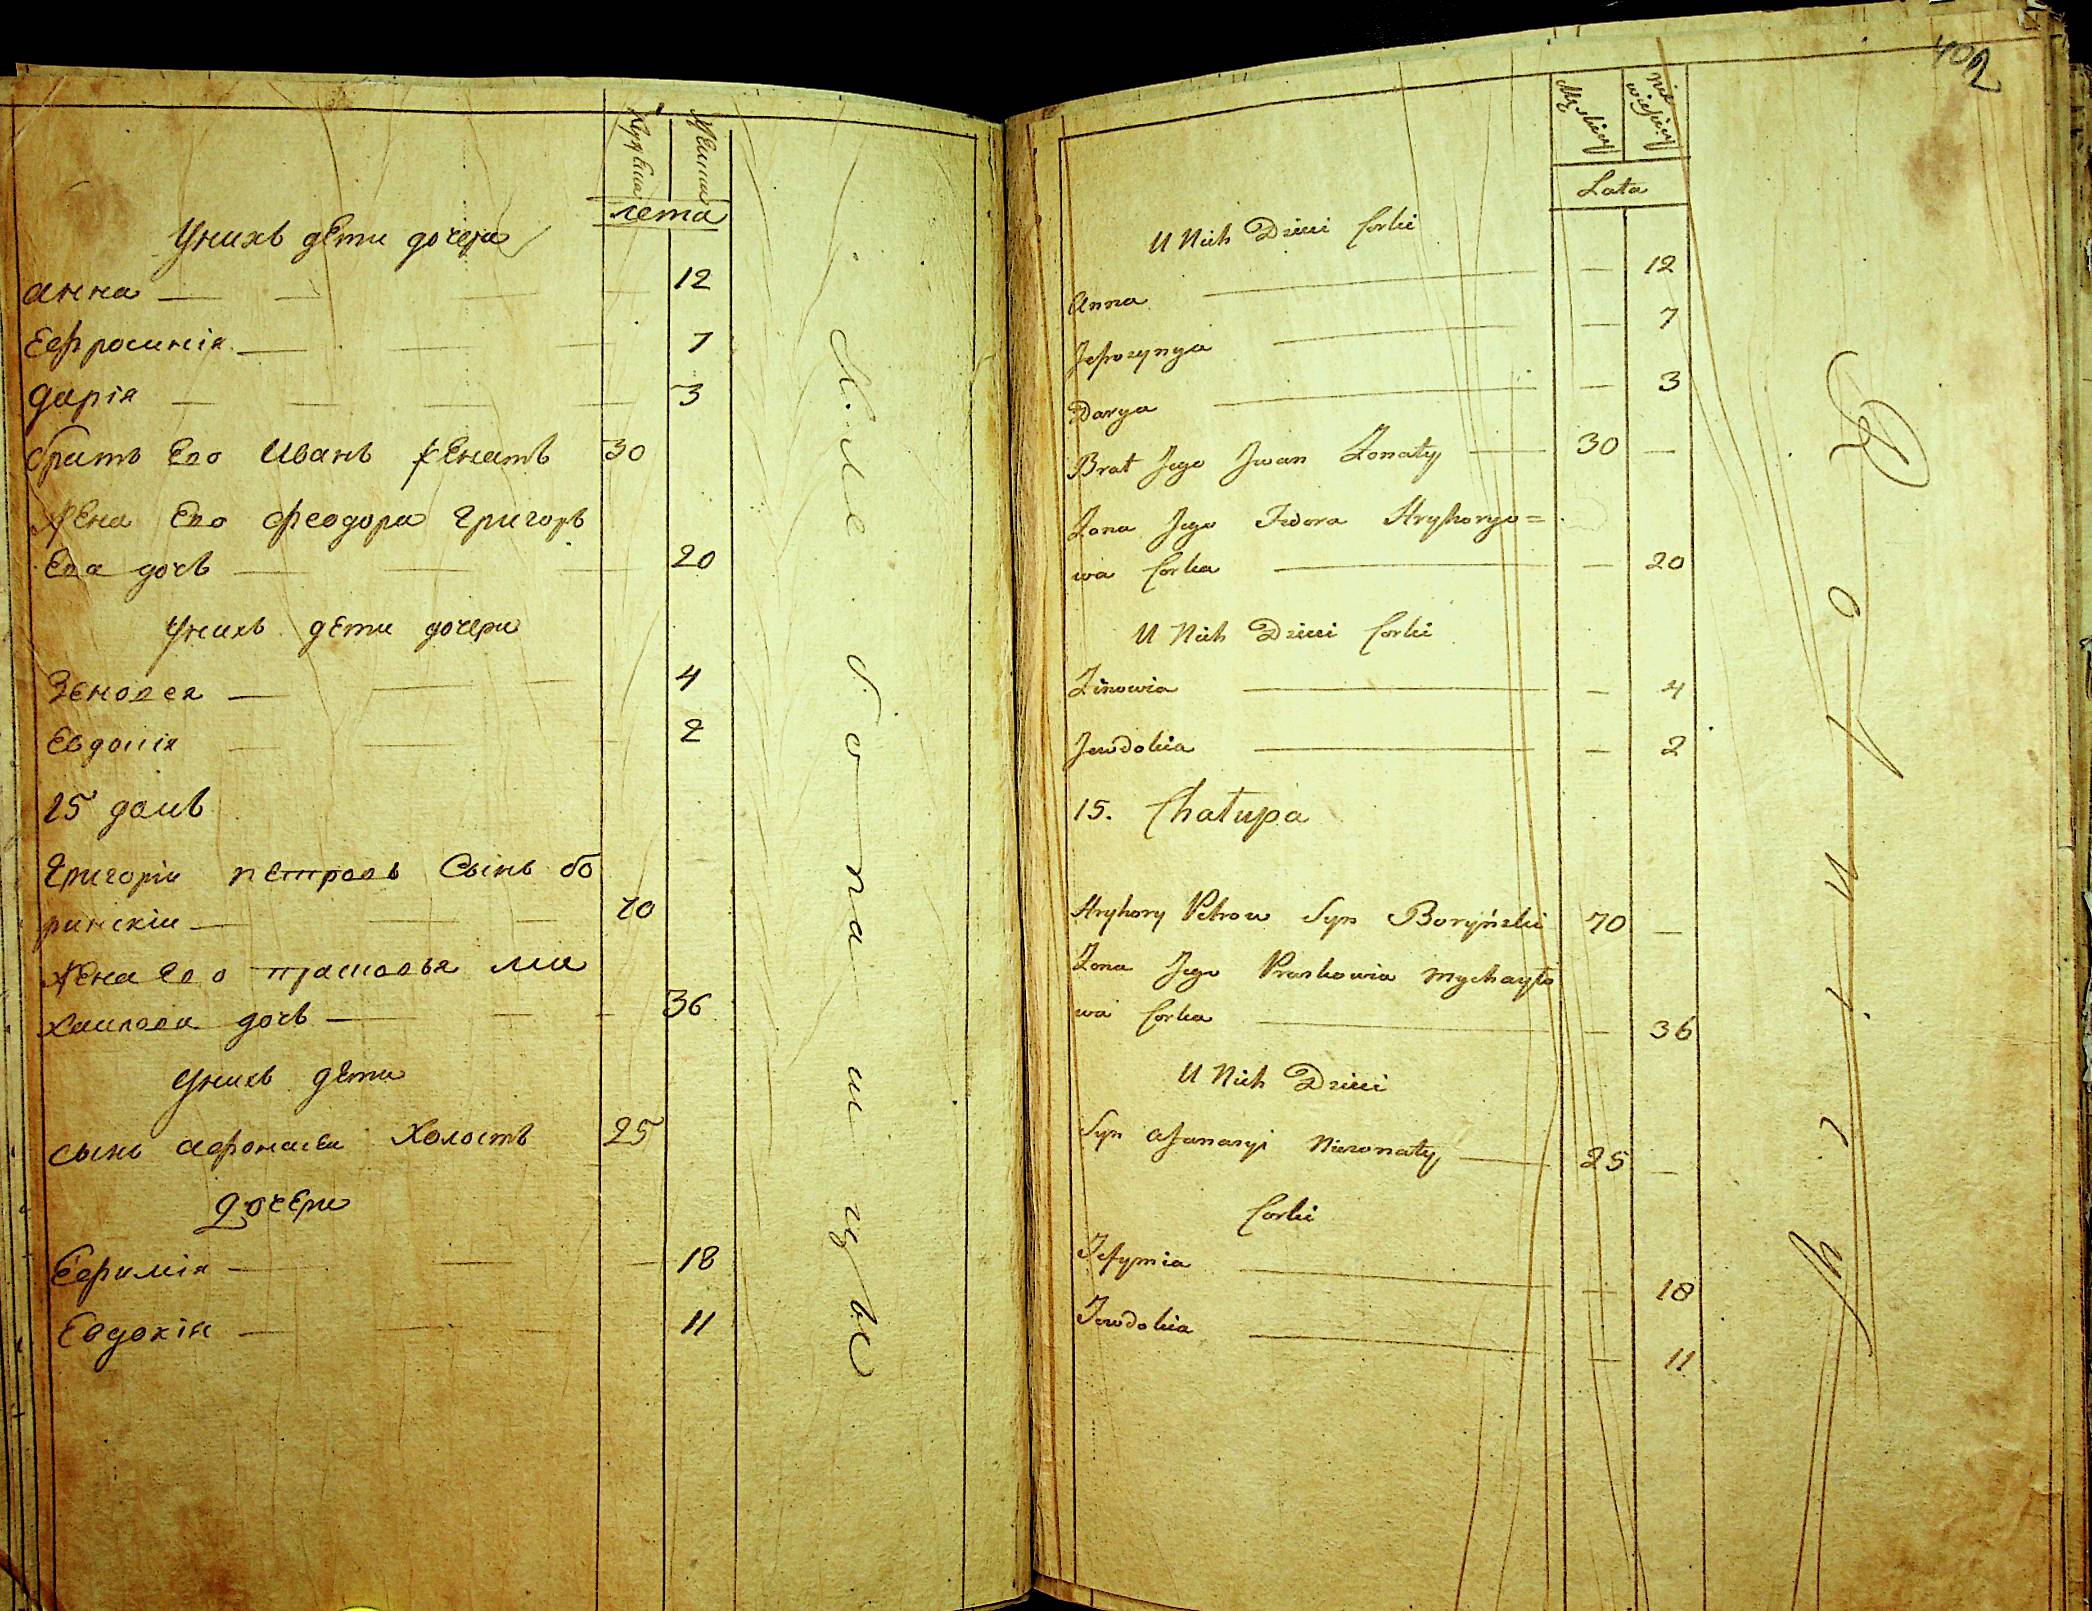 Мужеска Женска
лета
Унихъ дети дочери
анна — — — 12
Ефросинія — — — 7
дарія — — — 3
братъ Его Иванъ женатъ 30
жена Его феодора григорь
Ева дочь — — — 20
Унихъ дети дочери
Зеновея — — — 4
Евдокія — — — 2
15 домъ
григори петровъ Сынъ бо
рински — — — 70
жена Его прасковья ми
хаилова дочь — — — 36
Унихъ дети
сынъ афонаси Холостъ 25
дочери
Ефимія — — — 18
Евдокія — — — 11
402
Męskiey Nie wieściey
Lata
U Nich Dzieci Corki
Anna — — 12
Jefrozynya — — 7
Darya — — 3
Brat Jego Jwan Zonaty — 30 —
Zona Jego Fedora Hryhoryo=
wa Corka — — 20
U Nich Dzieci Corki
Zinowia — — 4
Jewdokia — — 2
15. Chałupa
Hryhory Petrow Syn Boryński 70 —
Zona Jego Praskowia Mychayło
wa Corka — — 36
U Nich Dzieci
Syn Afanasyi Niezonaty — 25 —
Corki
Jefymia — — 18
Jewdokia — — 11